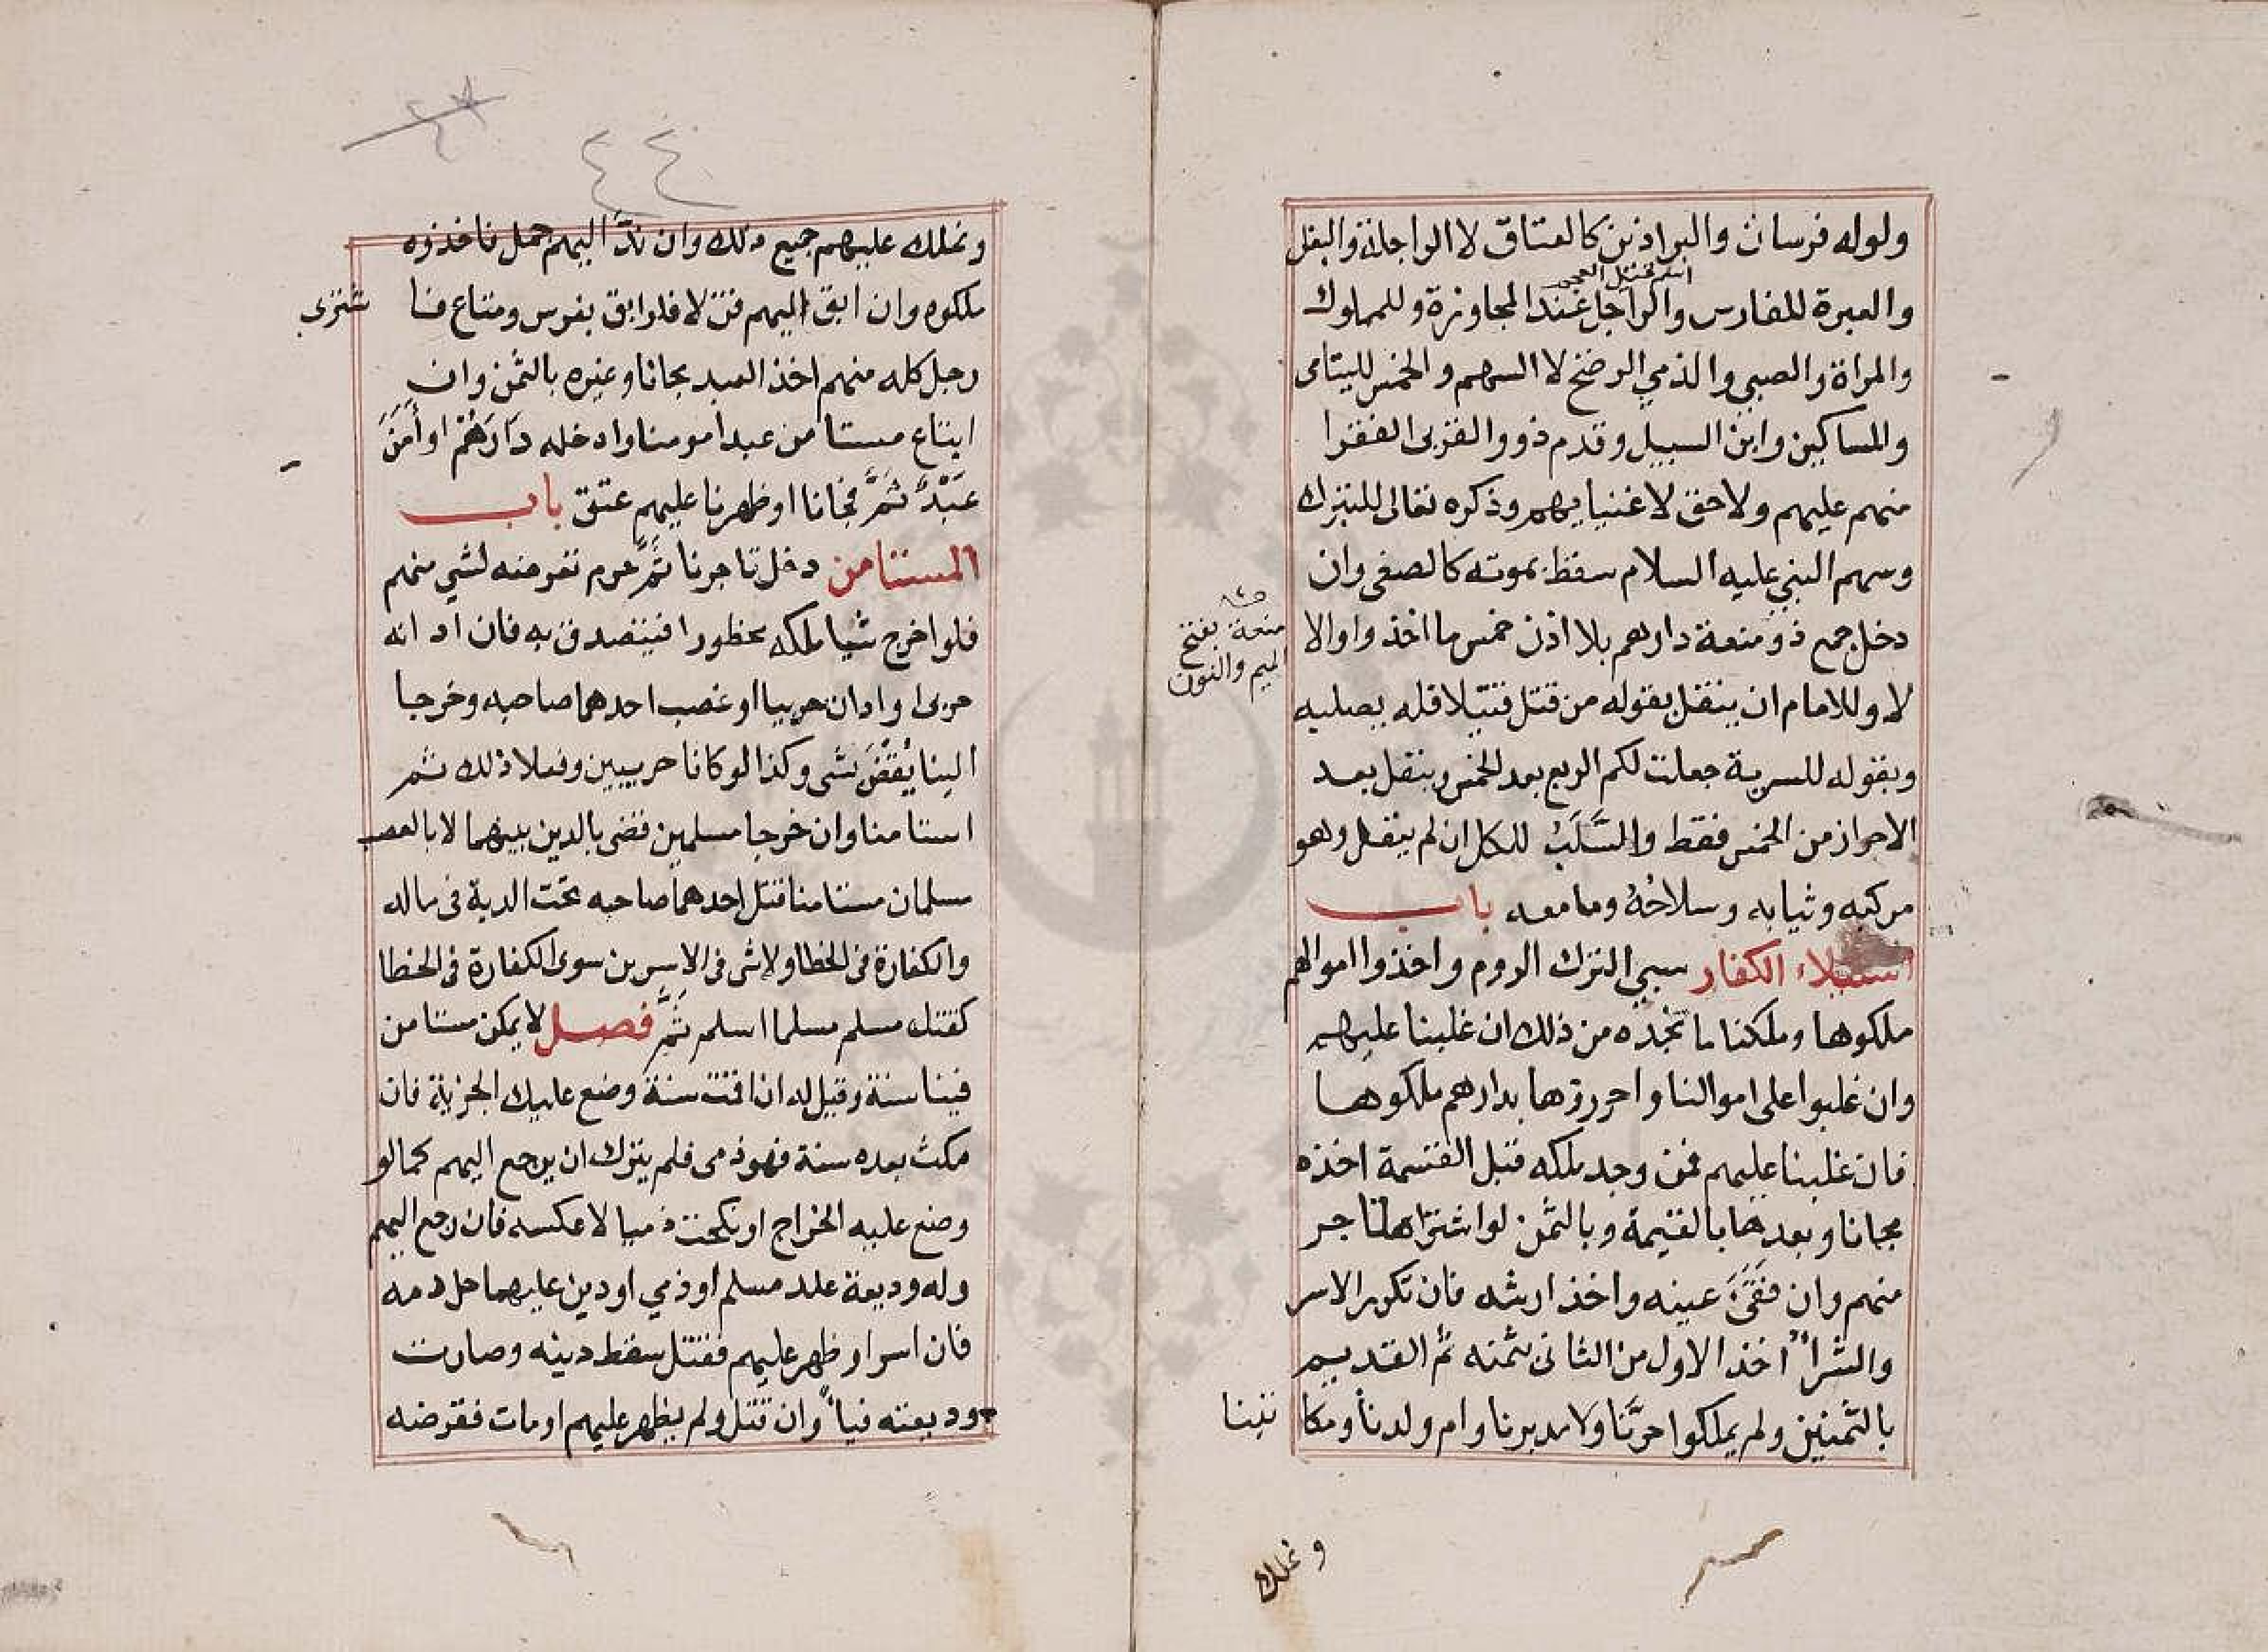 ولوله فرسان والبراذين كالعتاق لا الراحلة والبغل
والعبرة للفارس والراجل عند المجاوزة وللمملوك
والمراة والصبي والذمي الرضخ لا السهم والخمس لليتامى
والمساكين وابن السبيل وقدم ذووا القربى الفقرا
منهم عليهم ولا حق لاغنيايهم وذكره تعالى للتبرك
وسهم النبي عليه السلام سقط بموته كالصفى وان
دخل جمع ذو منعة دارهم بلا اذن خمس ما اخذوا والا
لا وللامام ان ينفل بقوله من قتل قتيلا فله بصلبه
وبقوله للسرية جعلت لكم الربع بعد الخمس وينفل بعد
الاحراز من الخمس فقط والسَّلَبُ للكل ان لم ينفل وهو
مركبه وثيابه وسلاحُهُ وما معه باب
استيلاء الكفار سبي الترك الروم واخذوا اموالهم
ملكوها وملكنا ما نجده من ذلك ان غلبنا عليهم
وان غلبوا على اموالنا واحرزوها بدارهم ملكوها
فان غلبنا عليهم فمن وجد ملكه قبل القسمة اخذه
مجانا وبعدها بالقيمة وبالثمن لو اشتراها تاجر
منهم وان فَقَئَ عينه واخذ ارشه فان تكرر الاسر
والشرأُ اخذ الاول من الثانى بثمنه ثم القديم
بالثمنين ولم يملكوا حرَّنا ولا مدبرنا وام ولدنا ومكاتبنا
منعة بفتح
الميم والنون
ونملك
٤٤
ونملك عليهم جميع ذلك وان ندَّ اليهم جمل فاخذوه
ملكوه وان ابق اليهم قن لا فلو ابق بفرس ومتاع فاشترى
رجل كله منهم اخذ العبد مجانا وغيره بالثمن وان
ابتاع مستامن عبدا مومنا وادخله دَارَهُمْ او أَمَنَ
عَبْدٌ ثَمَّ فجانا او ظهرنا عليهم عتق باب
المستامن دخل تاجرنا ثَمَّ حرم تعرضه لشي منهم
فلو اخرج شيا ملكه محظورا فيتصدق به فان ادانه
حربى او ادان حربيا او غصب احدهما صاحبه وخرجا
الينا يُقْضَ بشى وكذا لو كانا حربيين وفعلا ذلك ثم
استامنا وان خرجا مسلمين قضى بالدين بينهما لا بالغصب
مسلمان مستامنا قتل احدهما صاحبه تحت الدية فى ماله
والكفارة فى الخطا ولا شى فى الاسيرين سوى الكفارة فى الخطا
كقتل مسلم مسلما اسلم ثَمَّ فصل لا يمكن مستامن
فينا سنة وقيل له ان اقمت سنة وضع عليك الجزية فان
مكث بعده سنة فهو ذمى فلم يترك ان يرجع اليهم كما لو
وضع عليه الخراج او نكحت ذميا لا عكسه فان رجع اليهم
وله وديعة علد مسلم او ذمي او دين عليهما حل دمه
فان اسر او ظهر عليهم فقتل سقط دينه وصارت
وديعته فيأً وان قتل ولم يظهر عليهم او مات فقرضه